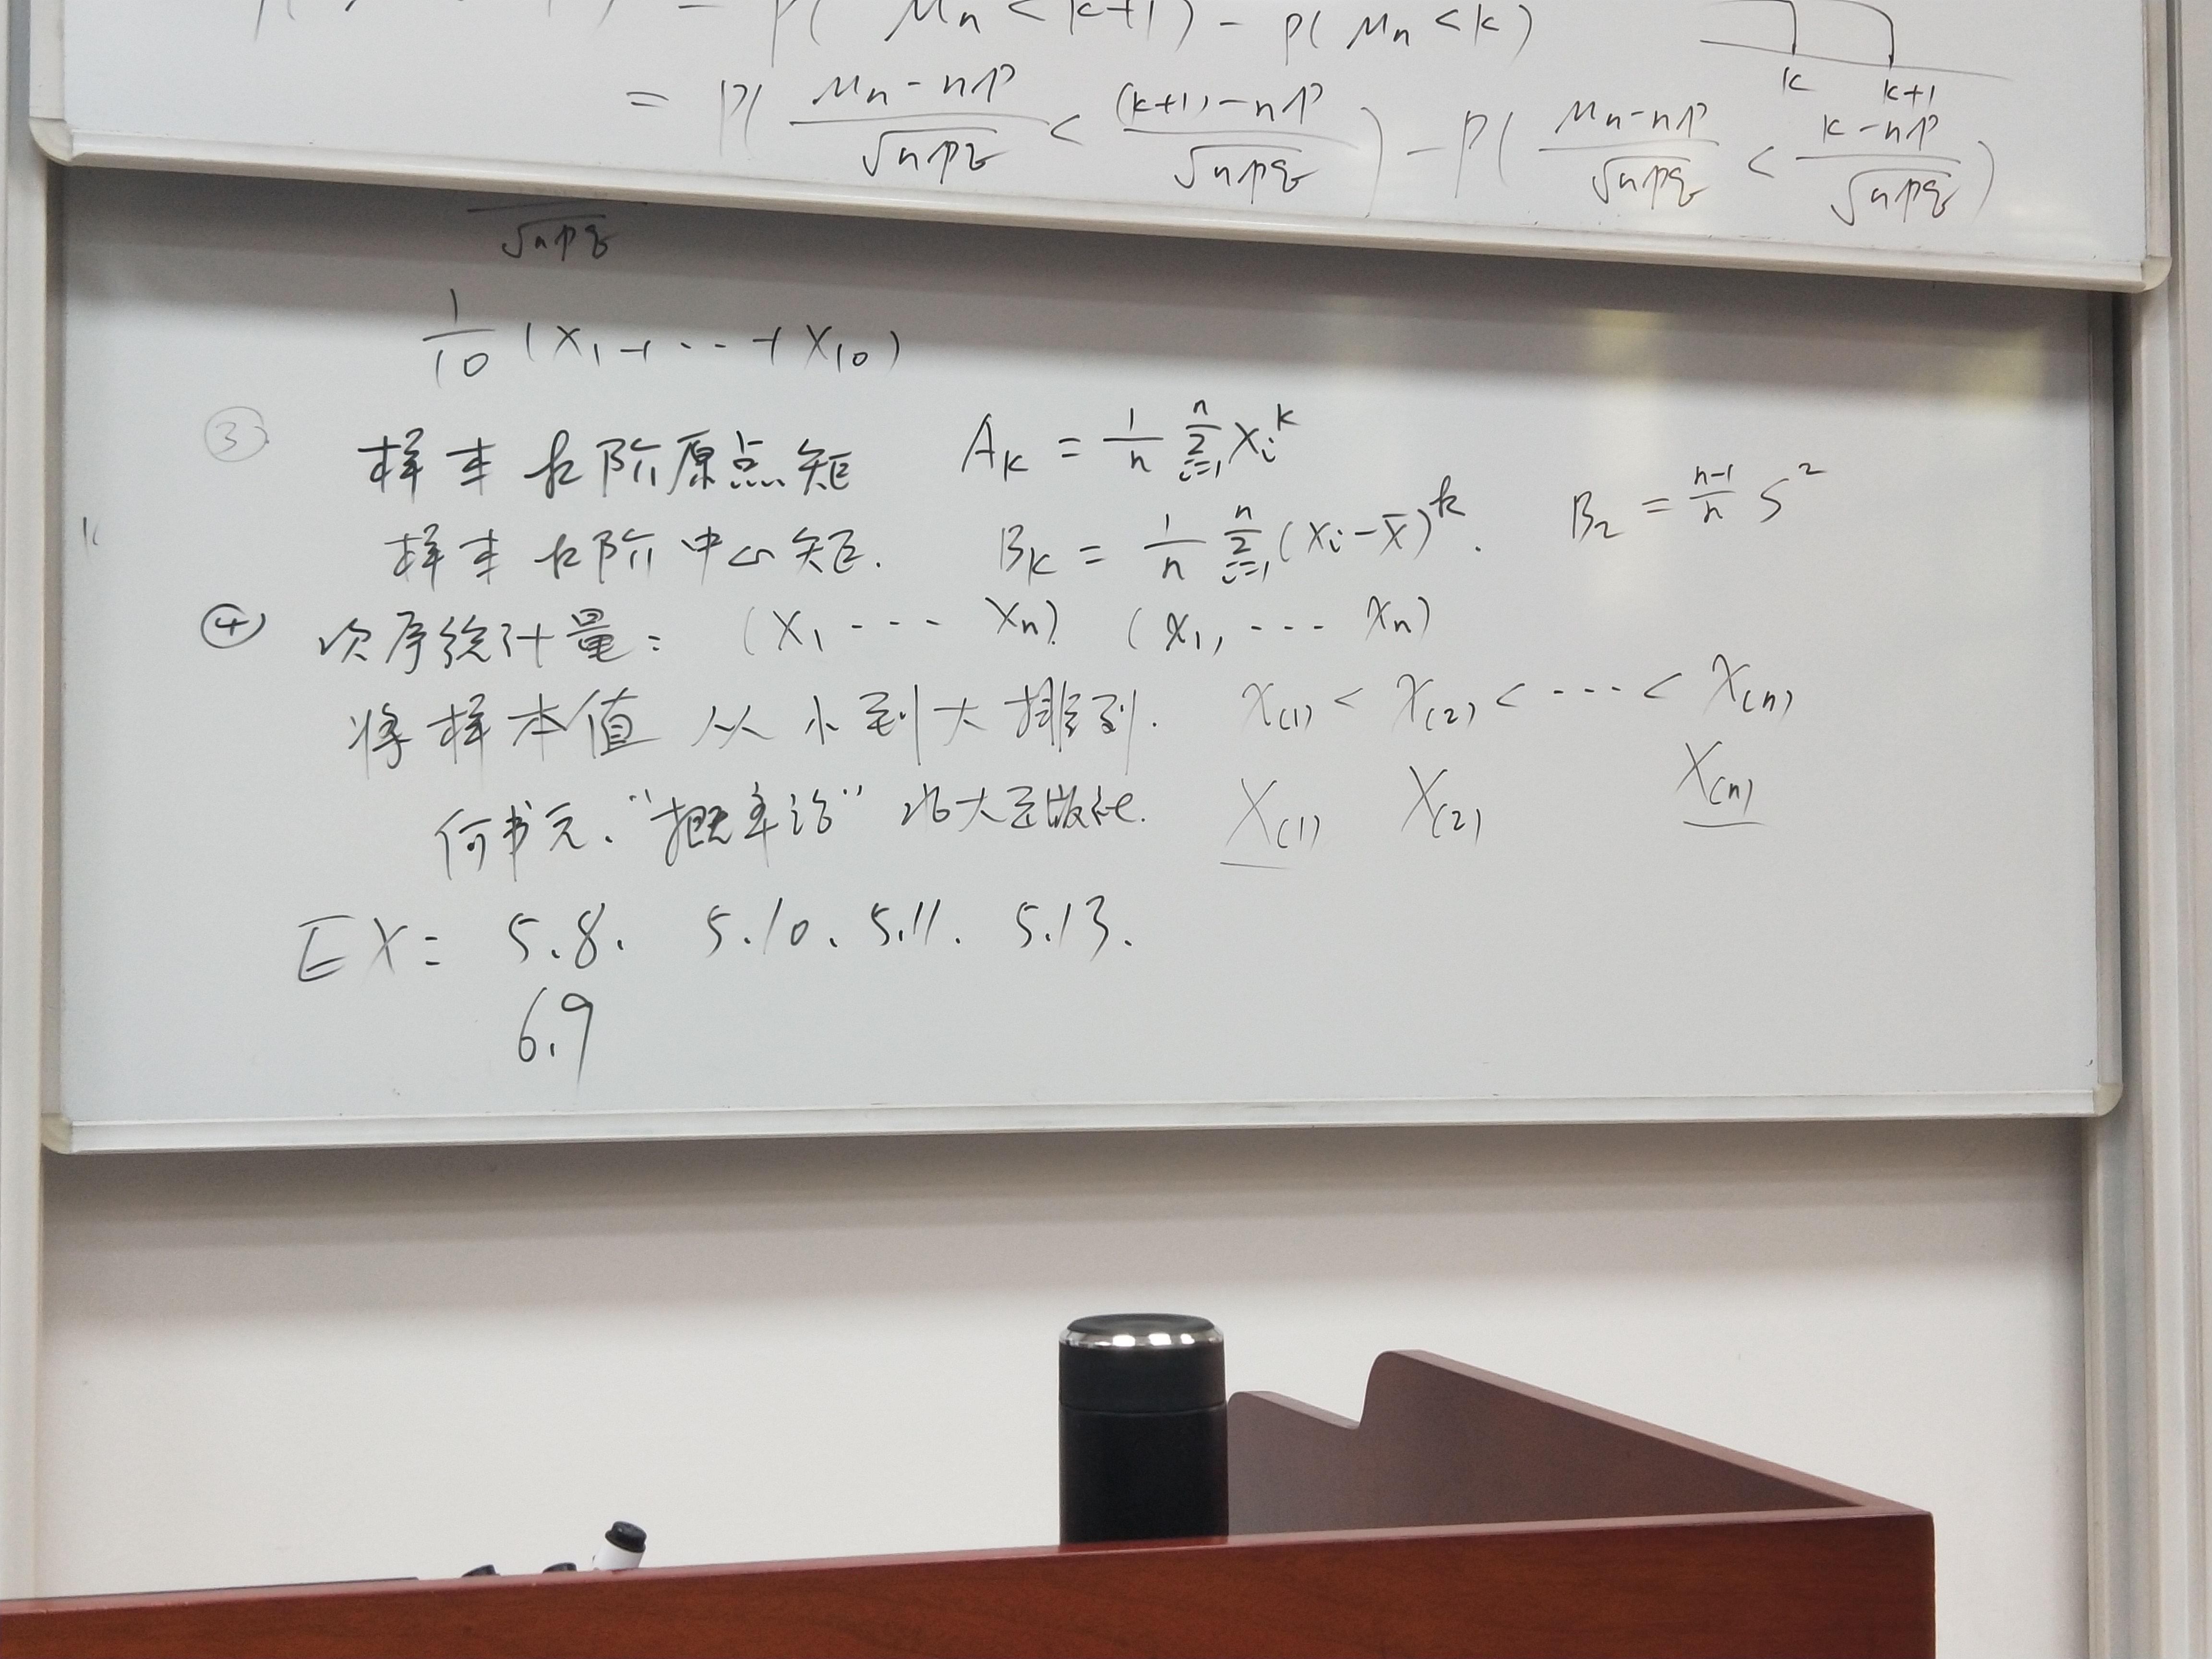 = P( μn < k+1) - P( μn < k)
k k+1
= P( (μn - np)/√npq < ((k+1) - np)/√npq ) - P( (μn - np)/√npq < (k - np)/√npq )
√npq
1/10 (X1 + ... + X10)
③ 样本k阶原点矩 Ak = 1/n Σ_{i=1}^{n} Xi^k
样本k阶中心矩. Bk = 1/n Σ_{i=1}^{n} (Xi - X̄)^k. B2 = (n-1)/n S²
④ 次序统计量: (X1 --- Xn). (x1, --- xn)
将样本值 从小到大排列. x(1) < x(2) < --- < x(n)
何书元. “概率论” 北大出版社. X(1) X(2) X(n)
EX: 5.8. 5.10. 5.11. 5.13.
6.9